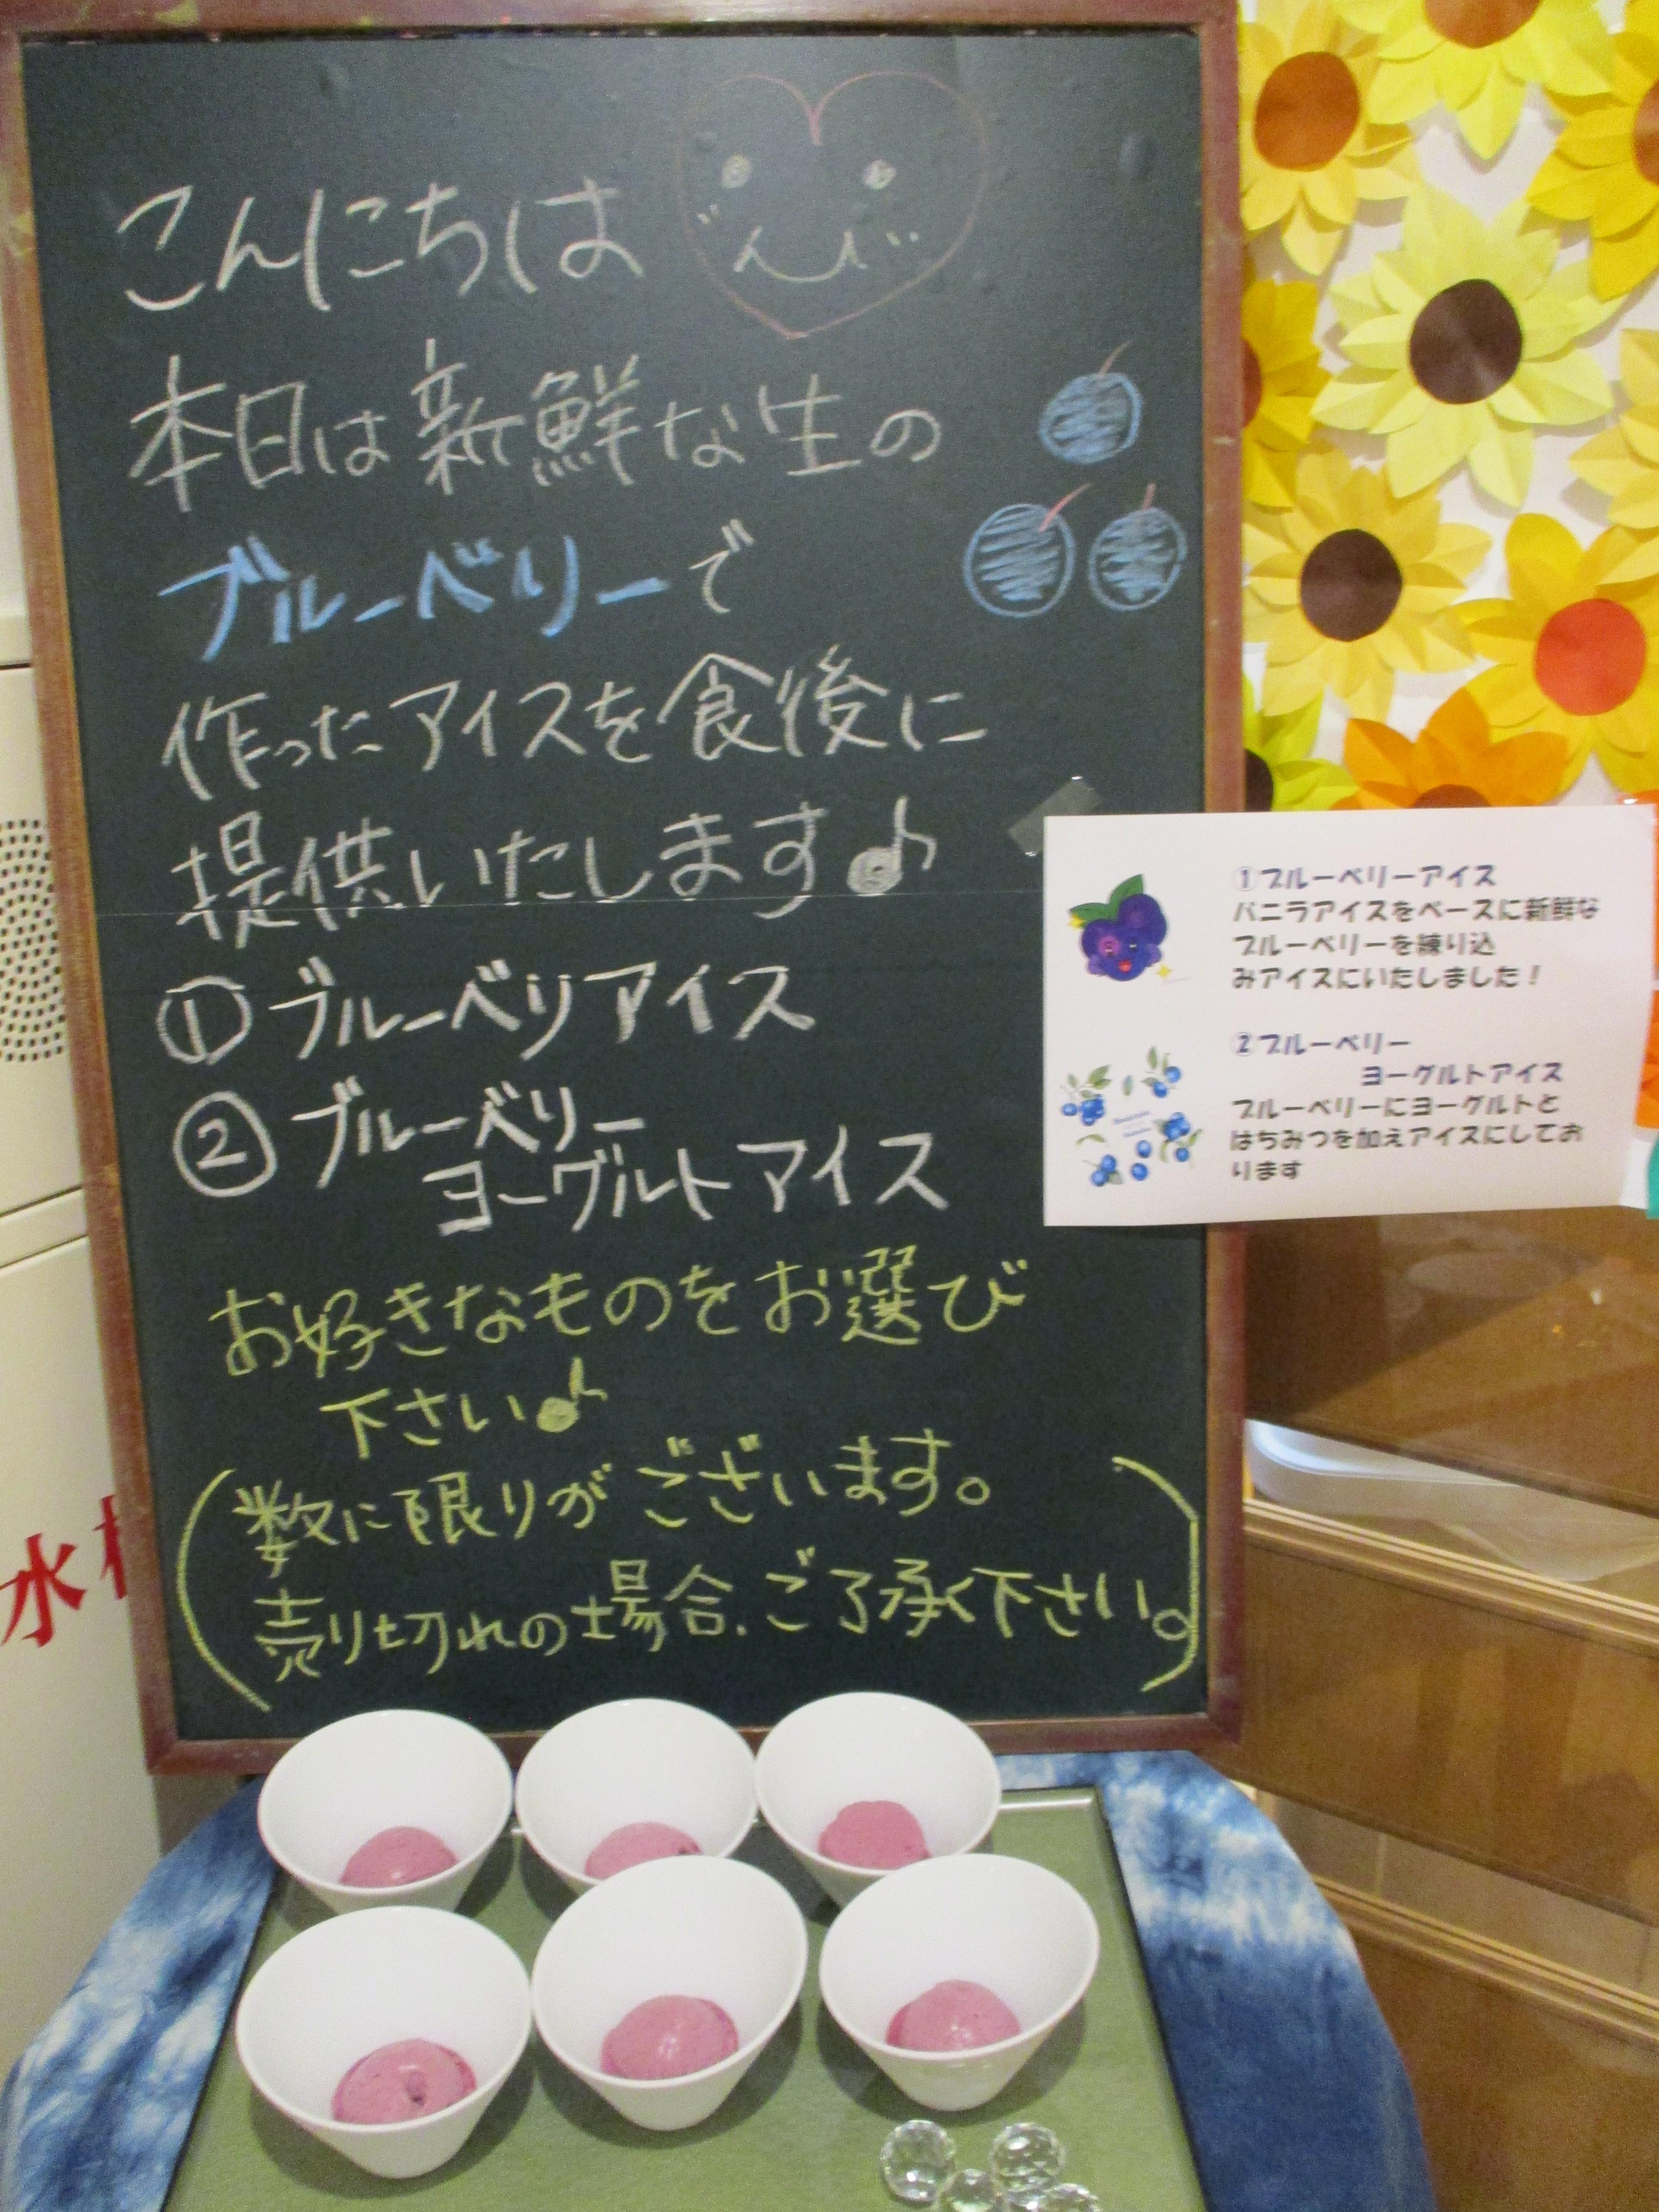 こんにちは
本日は新鮮な生の
ブルーベリーで
作ったアイスを食後に
提供いたします♪
① ブルーベリアイス
② ブルーベリー
ヨーグルトアイス
お好きなものをお選び
下さい♪
(数に限りがございます。
売り切れの場合、ご了承く下さい。)
①ブルーベリーアイス
バニラアイスをベースに新鮮な
ブルーベリーを練り込
みアイスにいたしました!
②ブルーベリー
ヨーグルトアイス
ブルーベリーにヨーグルトと
はちみつを加えアイスにしてお
ります
水